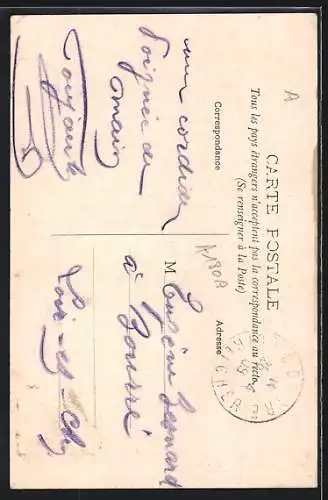 CARTE POSTALE
Tous les pays étrangers n'acceptent pas la correspondance au recto
(Se renseigner à la Poste)
Correspondance
Adresse
une cordiale
Poignée de
main
M Eugène Besnard
à Bourré
Loir-et-Cher
A
CHER